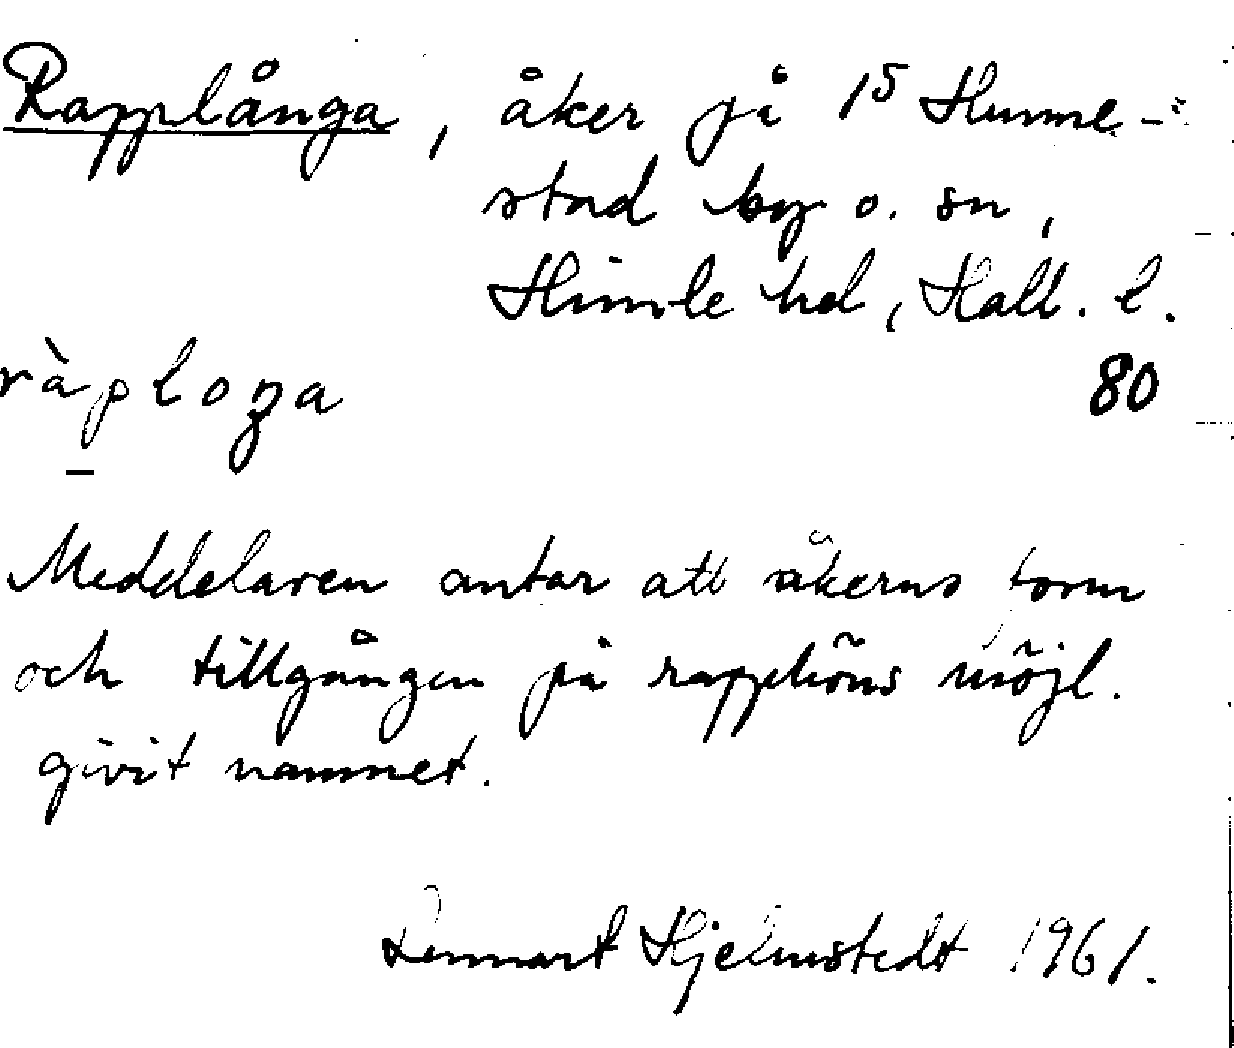 Rapplånga, åker på 1⁵ Humme-
stad by o. sn,
Himle hd, Hall. l.
ràploŋa 80
Meddelaren antar att åkerns form
och tillgången på rapphöns möjl.
givit namnet.
Lennart Hjelmstedt 1961.